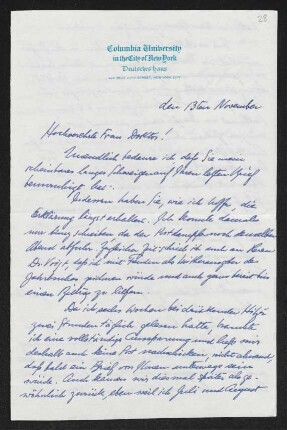 28
Columbia University
in the City of New York
Deutsches Haus
den 13ten November
Hochverehrte Frau Doktor!
Unendlich bedaure ich daß Sie mein
scheinbar langes Schweigen auf Ihren letzten Brief
beunruhigt hat.
Indessen haben Sie, wie ich hoffe, die
Erklärung längst erhalten. Ich konnte damals
nur kurz schreiben da der noch denselben
Abend abfuhr. schrieb ich auch an Herrn
Dr. daß ich mit Freuden als Mitherausgeber des
Jahrbuches zeichnen würde und auch gern bereit bin
einen Beitrag zu liefern.
Da ich sechs Wochen bei drückender Hitze
zwei Stunden täglich gelesen hatte, brauchte
ich eine vollständige Ausspannung und ließ mir
deshalb auch keine Post nachschicken, nicht ahnend,
daß bald ein Brief von Ihnen unterwegs sein
würde. Auch kamen wir diesmal später als ge-
wöhnlich zurück, eben weil ich Juli und August